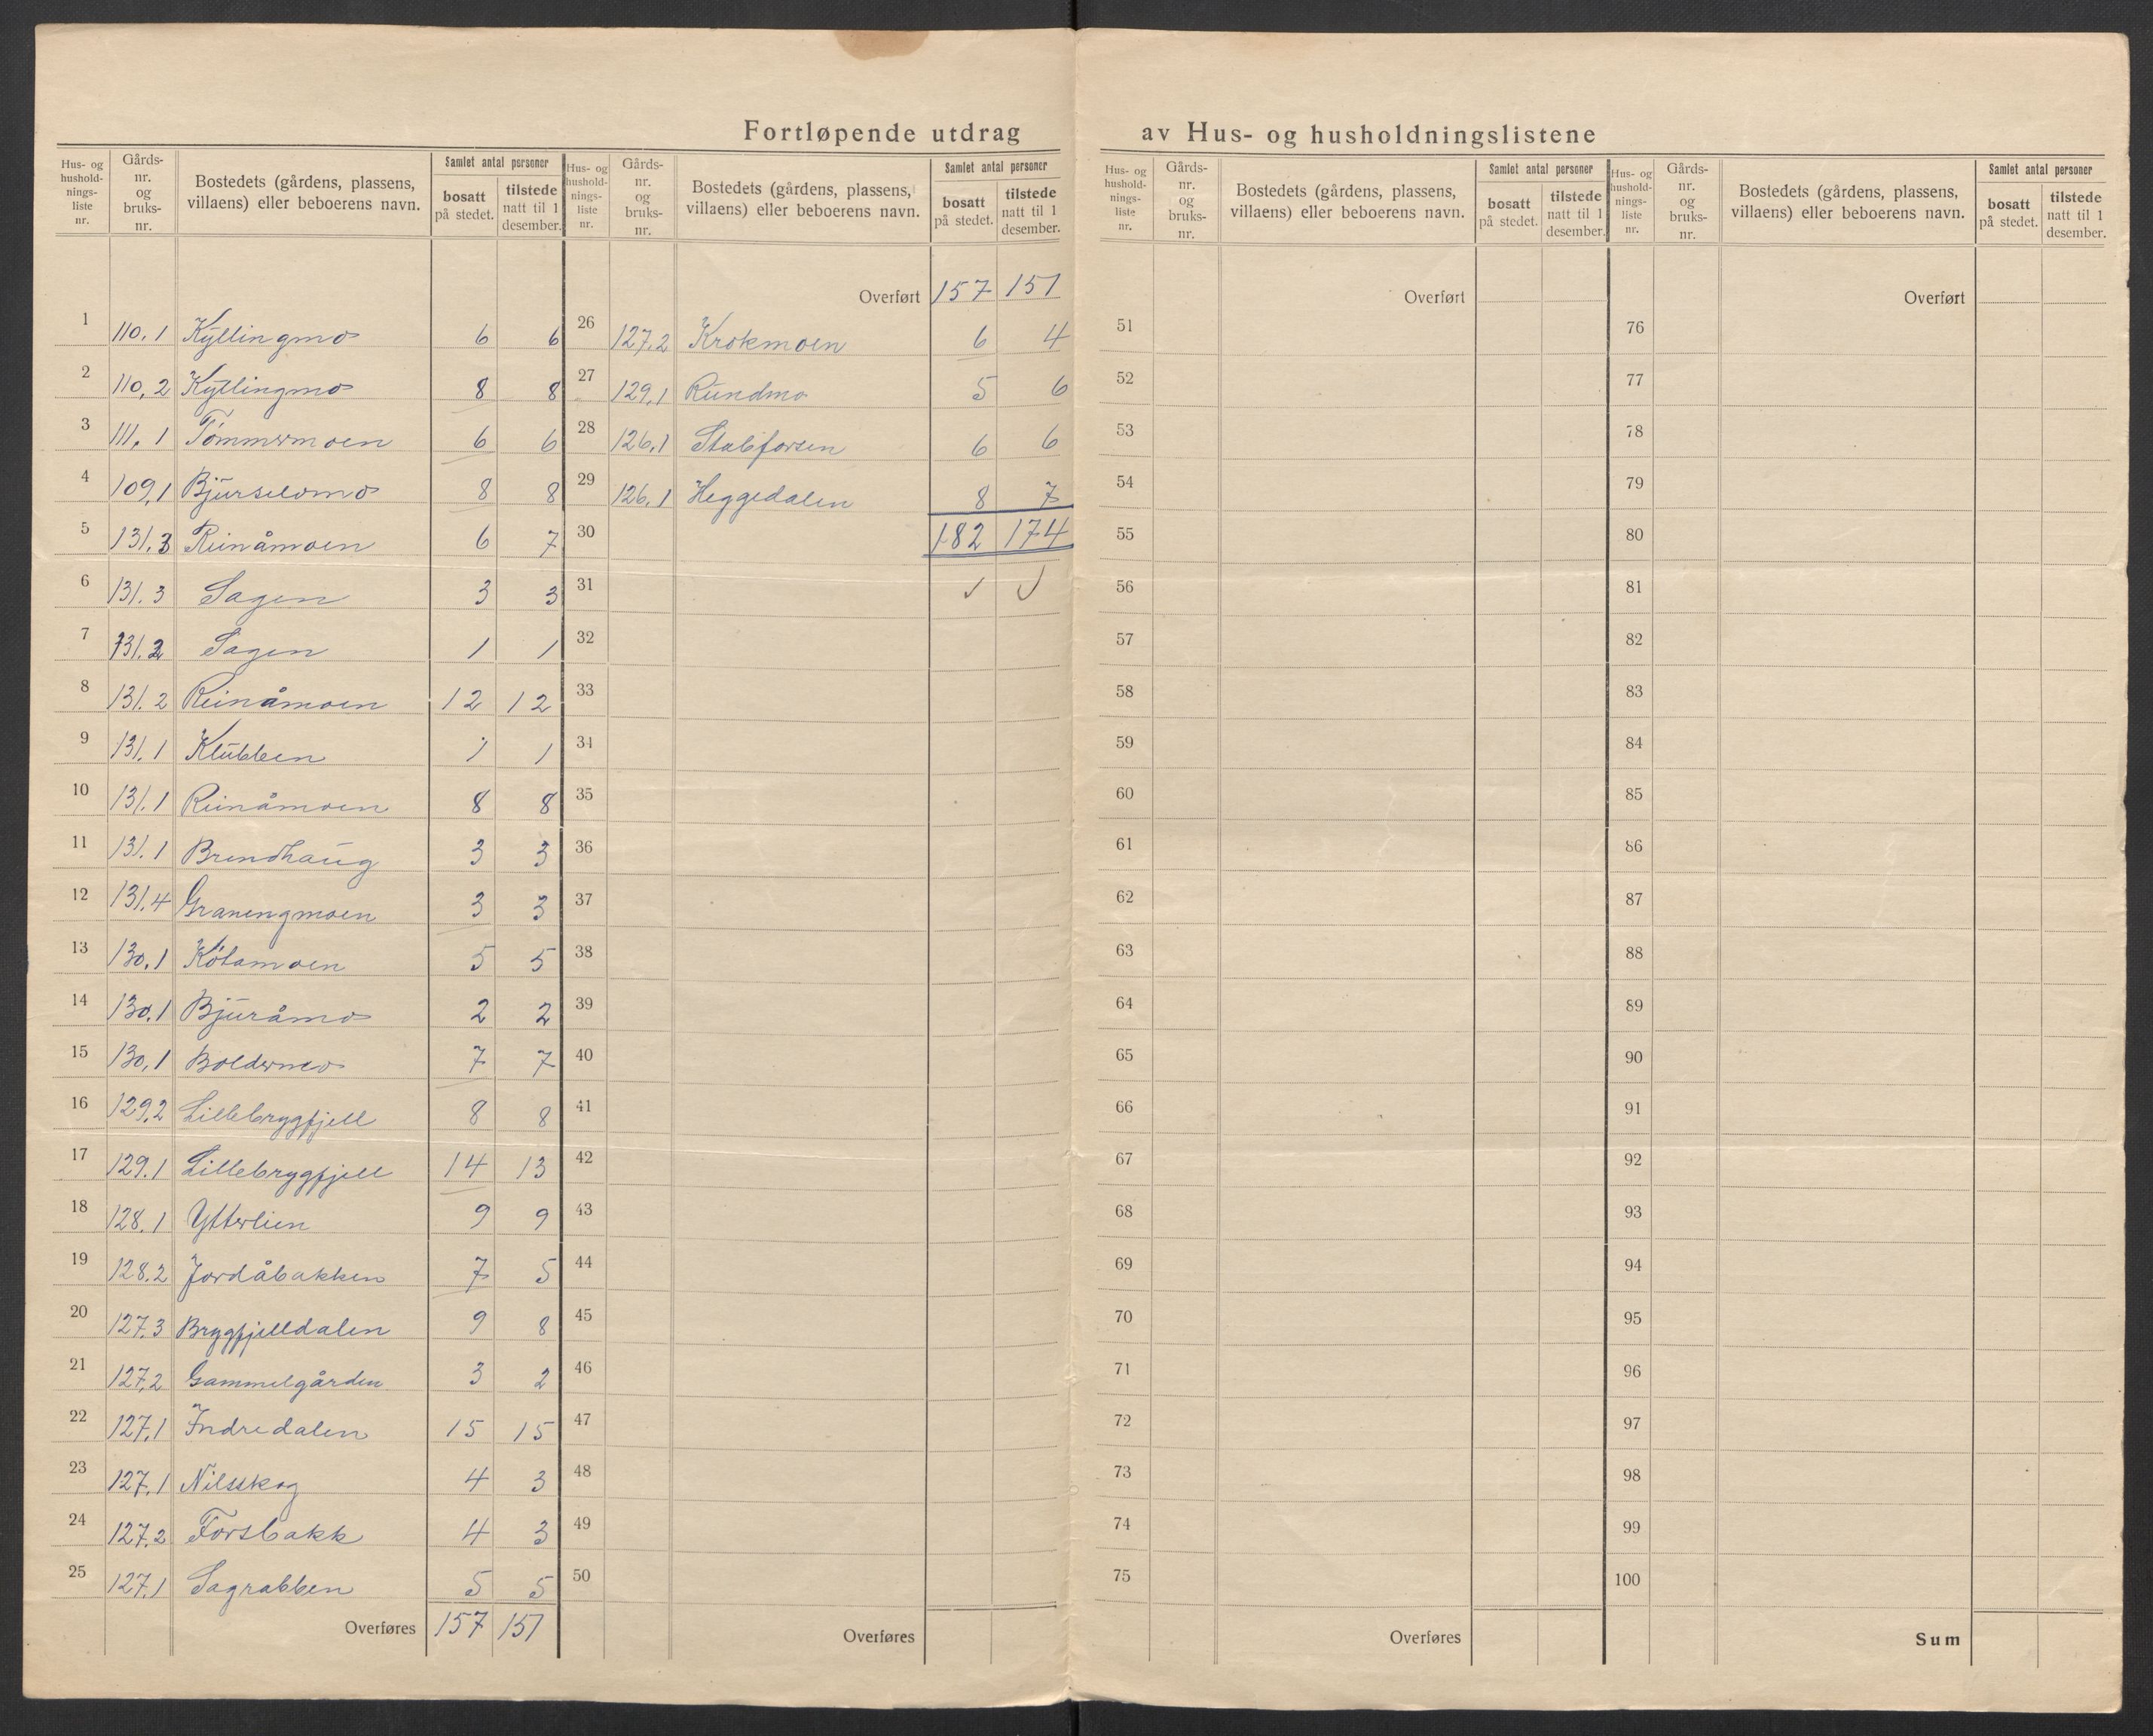 Fortløpende utdrag av Hus- og husholdningslistene
Hus- og husholdnings-liste nr. Gårds-nr. og bruks-nr. Bostedets (gårdens, plassens, villaens) eller beboerens navn. Samlet antal personer bosatt på stedet. tilstede natt til 1 desember.
1 110.1 Kyllingmo 6 6
2 110.2 Kyllingmo 8 8
3 111.1 Tømmermoen 6 6
4 109.1 Bjurselvmo 8 8
5 131.3 Reinåmoen 6 7
6 131.3 Sagen 3 3
7 131.2 Sagen 1 1
8 131.2 Reinåmoen 12 12
9 131.1 Klubben 1 1
10 131.1 Reinåmoen 8 8
11 131.1 Brendhaug 3 3
12 131.4 Granengmoen 3 3
13 130.1 Kåtamoen 5 5
14 130.1 Bjuråmo 2 2
15 130.1 Boldermo 7 7
16 129.2 Lillebryggfjell 8 8
17 129.1 Lillebryggfjell 14 13
18 128.1 Ytterlien 9 9
19 128.2 Jordåbakken 7 5
20 127.3 Bryggfjelldalen 9 8
21 127.2 Gammelgården 3 2
22 127.1 Indredalen 15 15
23 127.1 Nilsskog 4 3
24 127.2 Forsbakk 4 3
25 127.1 Sagrabben 5 5
Overføres 157 151
Hus- og husholdnings-liste nr. Gårds-nr. og bruks-nr. Bostedets (gårdens, plassens, villaens) eller beboerens navn. Samlet antal personer bosatt på stedet. tilstede natt til 1 desember.
Overført 157 151
26 127.2 Krokmoen 6 4
27 129.1 Rundmo 5 6
28 126.1 Stabforsen 6 6
29 126.1 Heggedalen 8 7
30 182 174
31 ✓ ✓
32
33
34
35
36
37
38
39
40
41
42
43
44
45
46
47
48
49
50
Overføres
Hus- og husholdnings-liste nr. Gårds-nr. og bruks-nr. Bostedets (gårdens, plassens, villaens) eller beboerens navn. Samlet antal personer bosatt på stedet. tilstede natt til 1 desember.
Overført
51
52
53
54
55
56
57
58
59
60
61
62
63
64
65
66
67
68
69
70
71
72
73
74
75
Overføres
Hus- og husholdnings-liste nr. Gårds-nr. og bruks-nr. Bostedets (gårdens, plassens, villaens) eller beboerens navn. Samlet antal personer bosatt på stedet. tilstede natt til 1 desember.
Overført
76
77
78
79
80
81
82
83
84
85
86
87
88
89
90
91
92
93
94
95
96
97
98
99
100
Sum